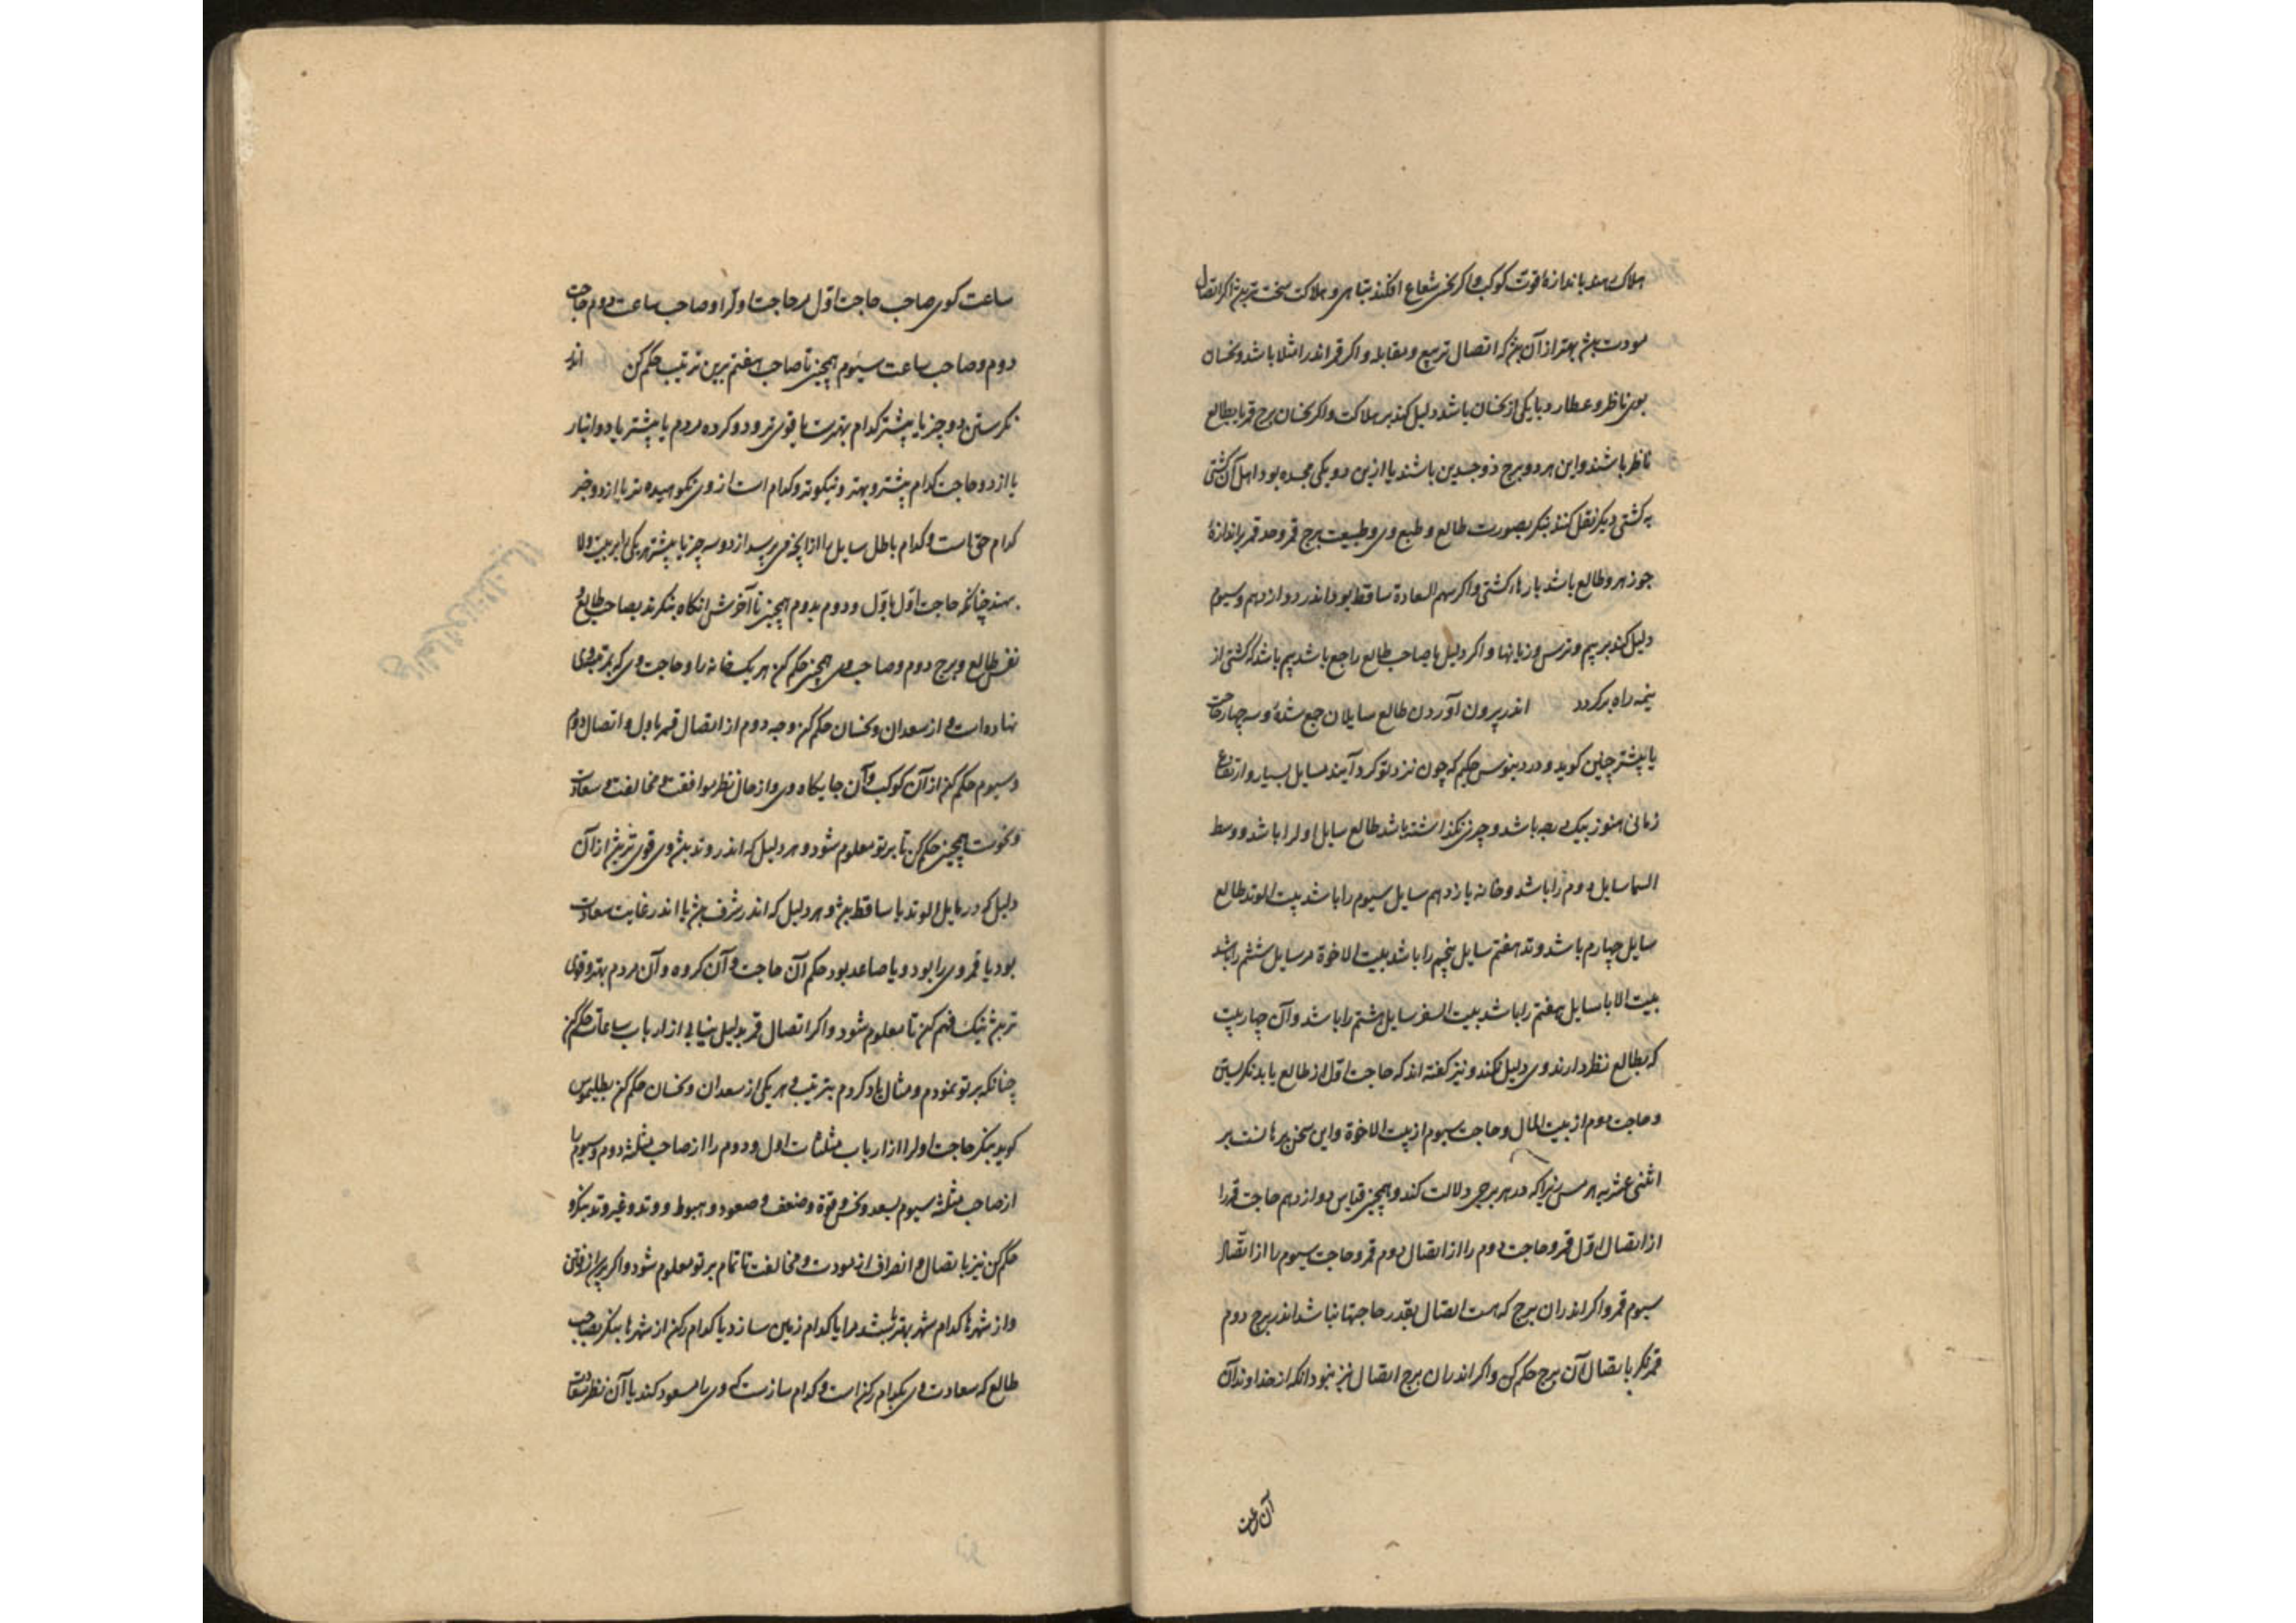 هلاک بود باندازه قوت کوکب و اکر نحس شعاع افکند تباهی و هلاکت سخت‌تر بیند اکر اتصال
مودت بیند بهتر از آن بیند که اتصال تربیع و مقابله و اکر قمر اندر امتلا باشد و نحسان
بوی ناظر و عطارد با یکی از نحسان باشد دلیل کند بر هلاکت و اکر نحسان برج قمر یا بطالع
ناظر باشند و این هر دو برج ذو جسدین باشند یا ازین دو یکی مجسده بود اهل آن کشتی
به کشتی دیکر نقل کنند بنکر بصورت طالع و طبع وی و طبیعت برج قمر و حد قمر بر اندازهٔ
جوزهر و طالع باشد بارهاء کشتی و اکر سهم السعادة ساقط بود اندر دوازدهم و سیوم
دلیل کند بر بیم و ترس و زیانها و اکر دلیل یا صاحب طالع راجع باشد بیم باشد که کشتی از
نیمه راه برکردد اندر بیرون آوردن طالع سایلان جمع شده و سه چهار حاجت
یا بیشتر چنین کوید ودردینوس حکیم که چون نزد تو کرد آیند مسایل بسیار و ارتفاع
زمانی هنوز بیک درجه باشد و چیزی نکذاشته باشد طالع سایل اول را باشد و وسط
السما سایل دوم را باشد و خانه یازدهم سایل سیوم را باشد بیت الوتد طالع
سایل چهارم باشد وتد هفتم سایل پنجم را باشد بیت الاخوة مر سایل ششم را باشد
بیت الابا سایل هفتم را باشد بیت السفر سایل هشتم را باشد و آن چهار بیت
که بطالع نظر دارند وی دلیل نکند و نیز کفته اند که حاجت اول از طالع باید نکریستن
و حاجت دوم از بیت المال و حاجت سیوم از بیت الاخوة و این سخن برهانست بر
اثنی عشریه هرمس زیراکه در هر برجی دلالت کند و همچنین قیاس دوازدهم حاجت قمر را
از اتصال اول قمر و حاجت دوم را از اتصال دوم قمر و حاجت سیوم را از اتصال
سیوم قمر و اکر اندران برج که هست اتصال بقدر حاجتها نباشد اندر برج دوم
قمر نکر باتصال آن برج حکم کن و اکر اندران برج اتصال نیز نبود انکه از خداوند آن
آن ساعت
ساعت کوی صاحب حاجت اول مر حاجت اول را و صاحب ساعت دوم حاجت
دوم و صاحب ساعت سیوم همچنین تا صاحب هفتم برین ترتیب حکم کن اندر
نکرستن دو چیز یا بیشتر کدام بهترست یا قوی‌تر و دو کروه مردم یا بیشتر یا دو انبار
یا از دو حاجت کدام بیشتر و بهتر و نیکوتر و کدام است از وی نکوهیده تر یا از دو خبر
کدام حق است و کدام باطل سایل را از آنچه می پرسد از دو سه چیز یا بیشتر هر یکی را بر بیت ولا
بنهد چنانکه حاجت اول باول و دوم بدوم همچنین تا آخرش انکاه بنکرند بصاحب طالع و
نفس طالع و برج دوم و صاحب وی همچنین حکم کن هر یک خانه را و حاجت وی که بمرتبه وی
نهاده است از سعدان و نحسان حکم کن وجه دوم از اتصال قمر باول و اتصال دوم
و سیوم حکم کن از آن کوکب و آن جایکاه وی و از حال نظر موافقت و مخالفت و سعادت
و نحوست همچنین حکم کن تا بر تو معلوم شود و هر دلیل که اندر وتد بیند وی قوی‌تر بیند از آن
دلیل که در مایل الوتد یا ساقط بیند و هر دلیل که اندر شرف بیند یا اندر غایت سعادت
بود یا قمر وی را بود و یا صاعد بود حکم آن حاجت و آن کروه و آن مردم بهتر و قوی
تر بیند نیک فهم کن تا معلوم شود و اکر اتصال قمر بدلیل نیابی از ارباب ساعات حکم کن
چنانکه بر تو نمودم و مثال یاد کردم بترتیب هر یکی از سعدان و نحسان حکم کن بطلیموس
کوید بنکر حاجت اول را از ارباب مثلثات اول و دوم را از صاحب مثلثه دوم و سیوم را
از صاحب مثلثه سیوم بسعد و نحس و قوة و ضعف و صعود و هبوط و وتد و غیر وتد بنکر و
حکم کن نیز باتصال و انصراف از مودت و مخالفت تا تمام بر تو معلوم شود و اکر پرسد از رفتن
و از شهرها کدام شهر بهتر باشد مرا یا کدام زمین سازد یا کدام رکن از شهرها بنکر بصاحب
طالع که سعادت وی بکدام رکن است و کدام سازست که وی را مسعود کند با آن نظر سعادت